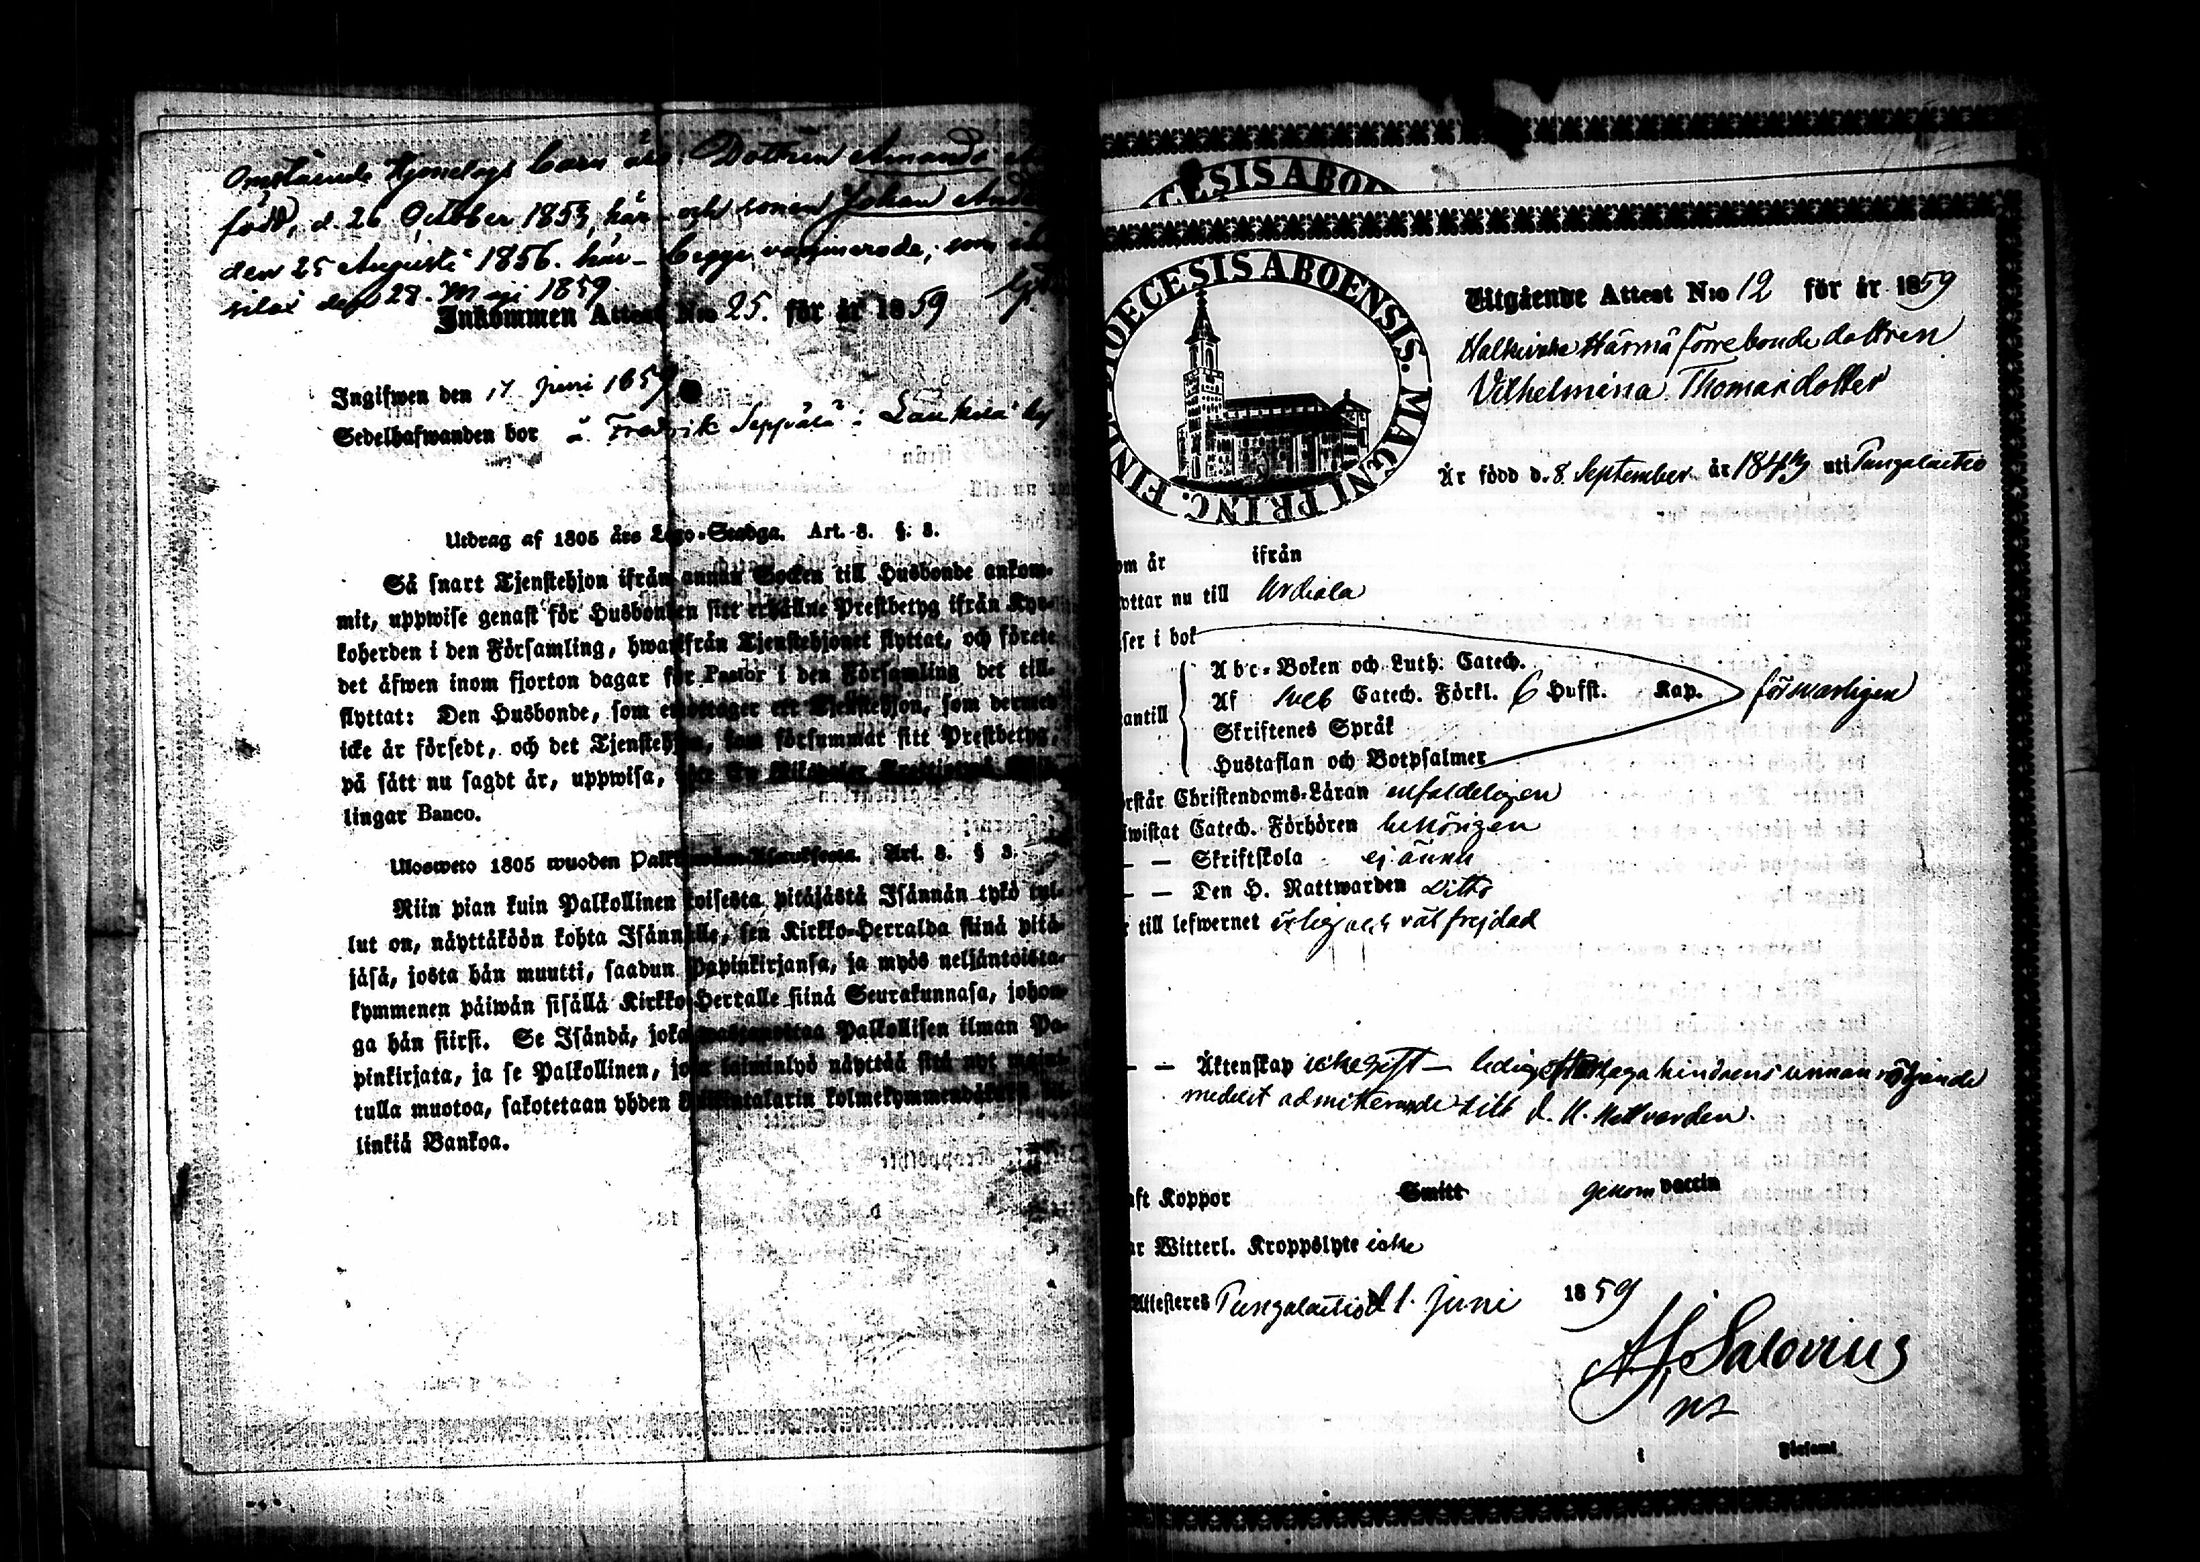 Omstående Hjonelags barn äro: Dottren Amanda
född, d. 26 October 1853, här och sonen Johan And
den 25 Augusti 1856. här – begge vaccinerade; som
den 28. Maji 1859.
Inkommen Attest N:o 25. för år 1859
Ingifwen den 17 Juni 1859
Sedelhafwanden bor å Fredrik Seppälä i by
Utdrag af 1805 års Lego-Stadga. Art. 8. §. 3.
Så snart Tjenstehjon ifrån annan Socken till Husbonde ankom-
mit, uppwise genast för Husbonden sitt erhållne Prestbetyg ifrån Kyr-
koherden i den Församling, hwarifrån Tjenstehjonet flyttat, och förete
det äfwen inom fjorton dagar för Pastor i den Församling det till-
flyttat: Den Husbonde, som emottager ett Tjenstehjon, som dermed
icke är försedt, och det Tjenstehjon, som försummat sitt Prestbetyg,
på sätt nu sagdt är, uppwisa,
lingar Banco.
Ulosweto 1805 wuoden Art. 8. § 3.
Niin pian kuin Palkollinen toisesta pitäjästä Isännän tykö tul-
lut on, näyttäköön kohta Isännälle, sen Kirkko-Herralda siinä pitä-
jäsä, josta hän muutti, saadun Papinkirjansa, ja myös neljäntoista-
kymmenen päiwän sisällä Kirkko-Herralle siinä Seurakunnasa, johon-
ga hän siirst. Se Isändä, joka wastanottaa Palkollisen ilman Pa-
pinkirjata, ja se Palkollinen, joka laiminlyö näyttää sitä nyt maini-
tulla muotoa, sakotetaan yhden kolmekymmendäkaksi
linkiä Bankoa.
DIOECESIS ABOENSIS. MAGNI PRINC. FINL.
Utgående Attest N:o 12 för år 1859
Härmä bonde dottren
Vilhelmina Thomasdotter
Är född d. 8 September år 1843 uti Pungalaitio
om år ifrån
yttar nu till Urdiala
ser i bok
Abc-Boken och Luth: Catech.
Af Sveb Catech. Förkl. 6 Hufst. Kap. försvarligen
antill
Skriftenes Språk
Hustaflan och Botpsalmer
rstår Christendoms-Läran enfaldeligen
wistat Catech. Förhören behörigen
– – Skriftskola ej ännu
– – Den H. Nattwarden Ditto
r till lefwernet ärlig och väl frejdad
– – Äktenskap icke gift – ledig
medelst admitterande till d. H. Nattvarden.
aft Koppor Smitt genom vaccin
ar Witterl. Kroppslyte icke
Attesteres Pungalaitio d 1. Juni 1859
Salovius
i Församl